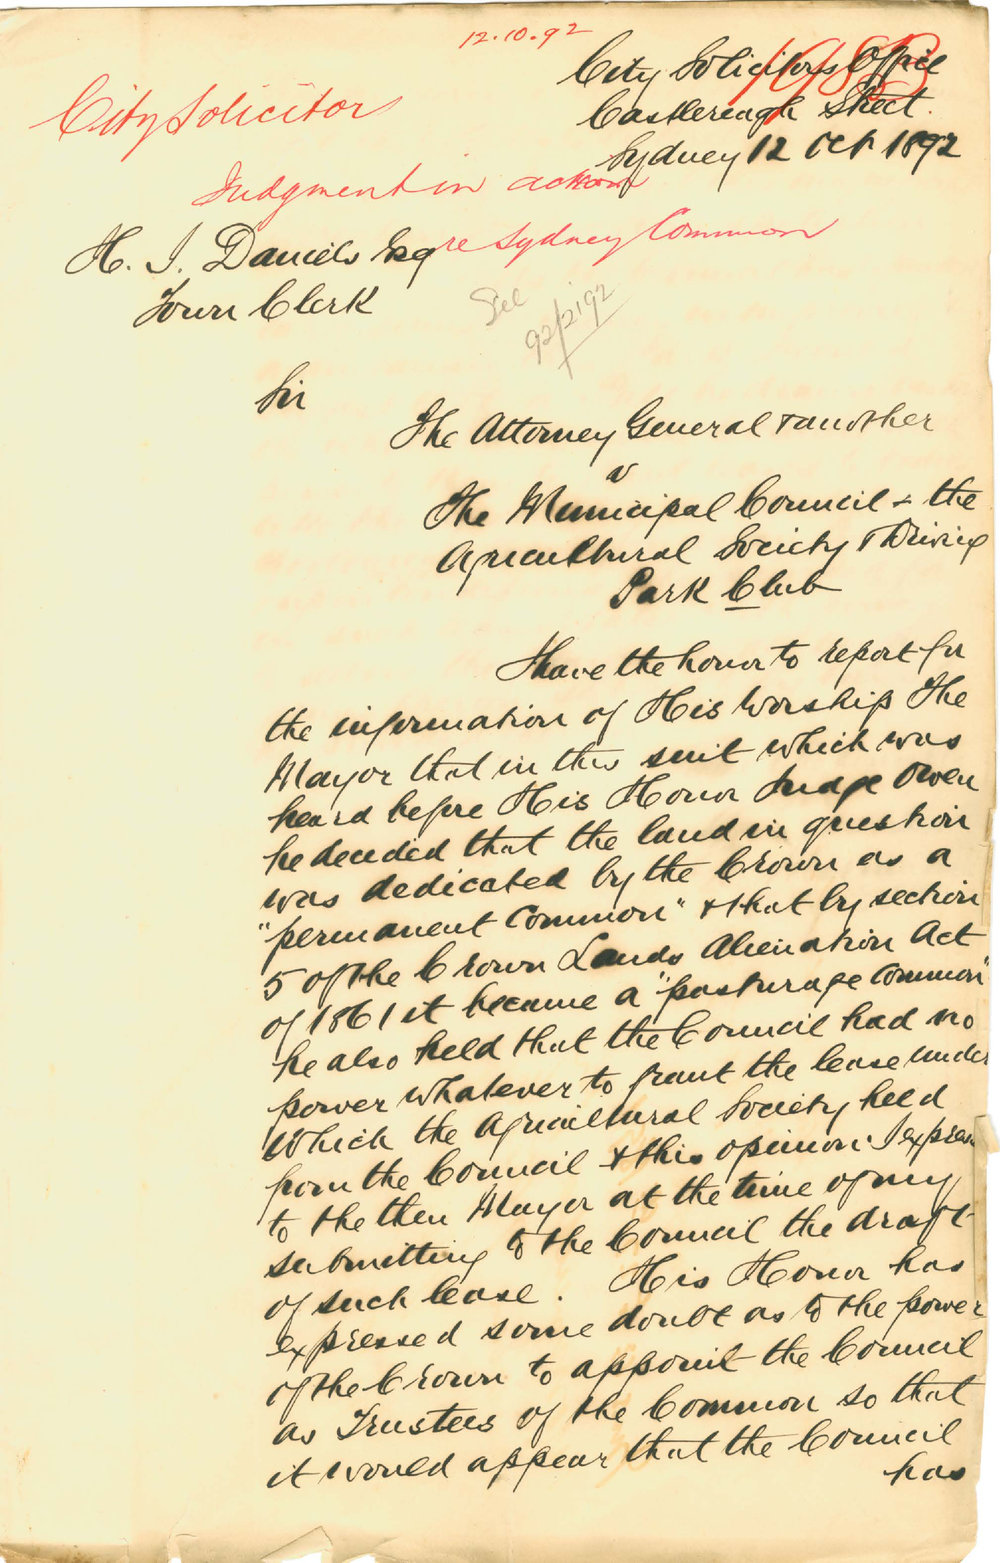 12.10.92
City Solicitors Office
Castlereagh Street.
Sydney 12 Oct 1892
City Solicitor
Judgment in action
re Sydney Common
H. J. Daniels Esq
Town Clerk
See
92/2192
Sir
The Attorney General & another
v
The Municipal Council & the
Agricultural Society & Driving
Park Club
I have the honor to report for
the information of His Worship The
Mayor that in this suit which was
heard before His Honor Judge Owen
he decided that the land in question
was dedicated by the Crown as a
"permanent Common" & that by section
5 of the Crown Lands Alienation Act
of 1861 it became a "pasturage Common"
he also held that the Council had no
power whatever to grant the lease under
which the Agricultural Society held
from the Council & this opinion I express
to the then Mayor at the time of my
submitting to the Council the draft
of such lease. His Honor has
expressed some doubt as to the power
of the Crown to appoint the Council
as Trustees of the Common so that
it would appear that the Council
has